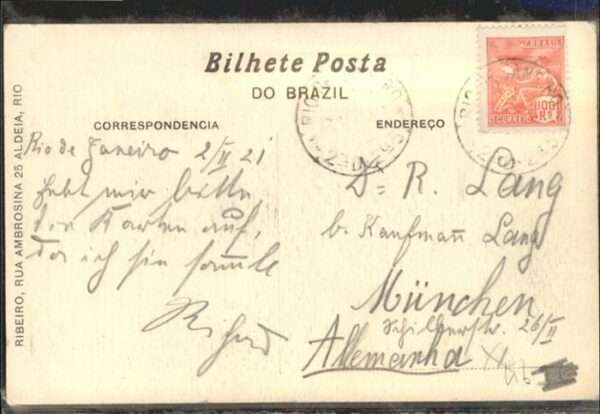 Bilhete Posta
DO BRAZIL
CORRESPONDENCIA
ENDEREÇO
BRASIL
100 Rs
CORREIO
RIBEIRO, RUA AMBROSINA 25 ALDEIA, RIO
Rio de Janeiro 2/II 21
Hebt mir bitte
die Karten auf,
da ich sie samle
Richard
Dr R. Lang
b. Kaufmann Lang
München
26/II
Allemanha